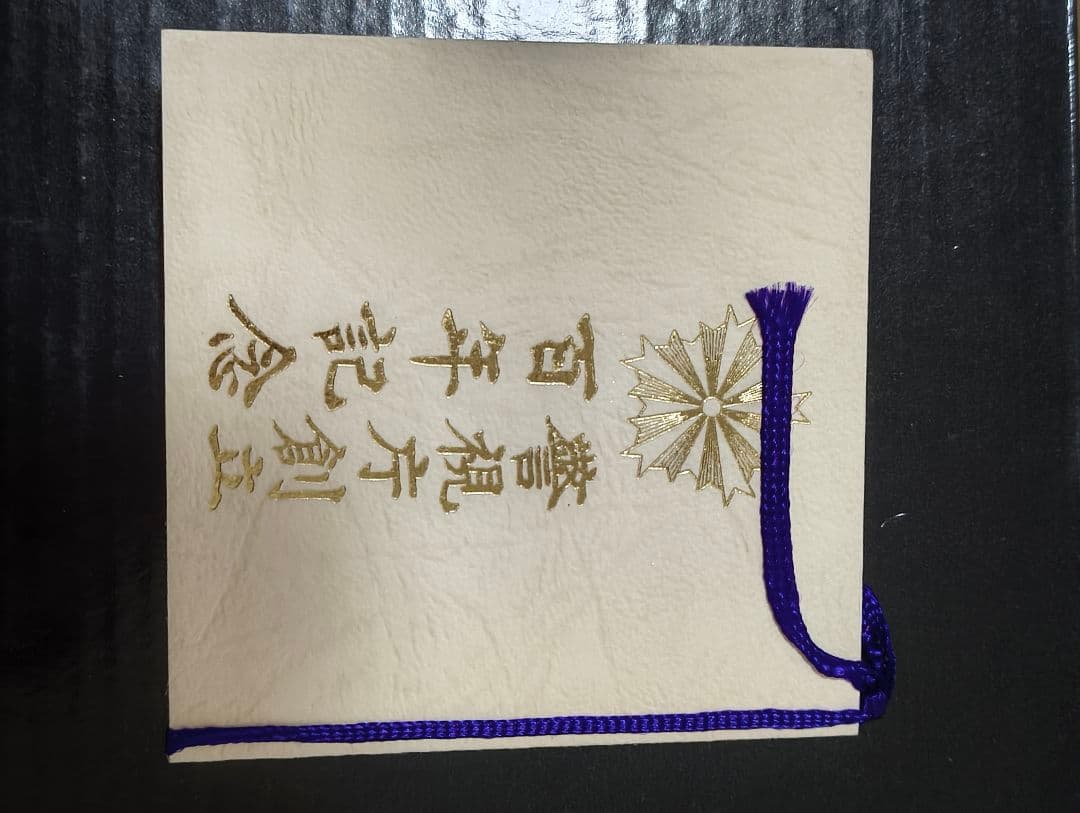 警視庁創立
百年記念